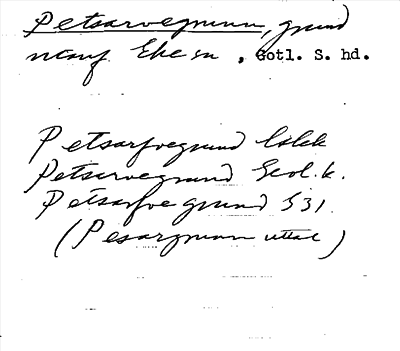 Petsarvegrunn, grund
nv Eke sn, Gotl. S. hd.
Petsarfvegrund
Petsarvegrund Geol. k.
Petsarfve grund S31.
(Pesargrunn uttal)